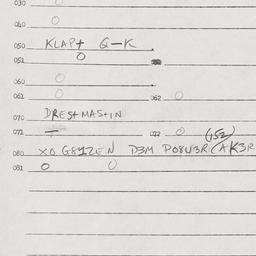 030
040 O
050 KLAPT G-K
051 O
060 O
061 O 062 O
070 DREST MASTIN
071 072 O (152)
080 XO G8YZEN D3M PO8U3R (AK3R
081 O O